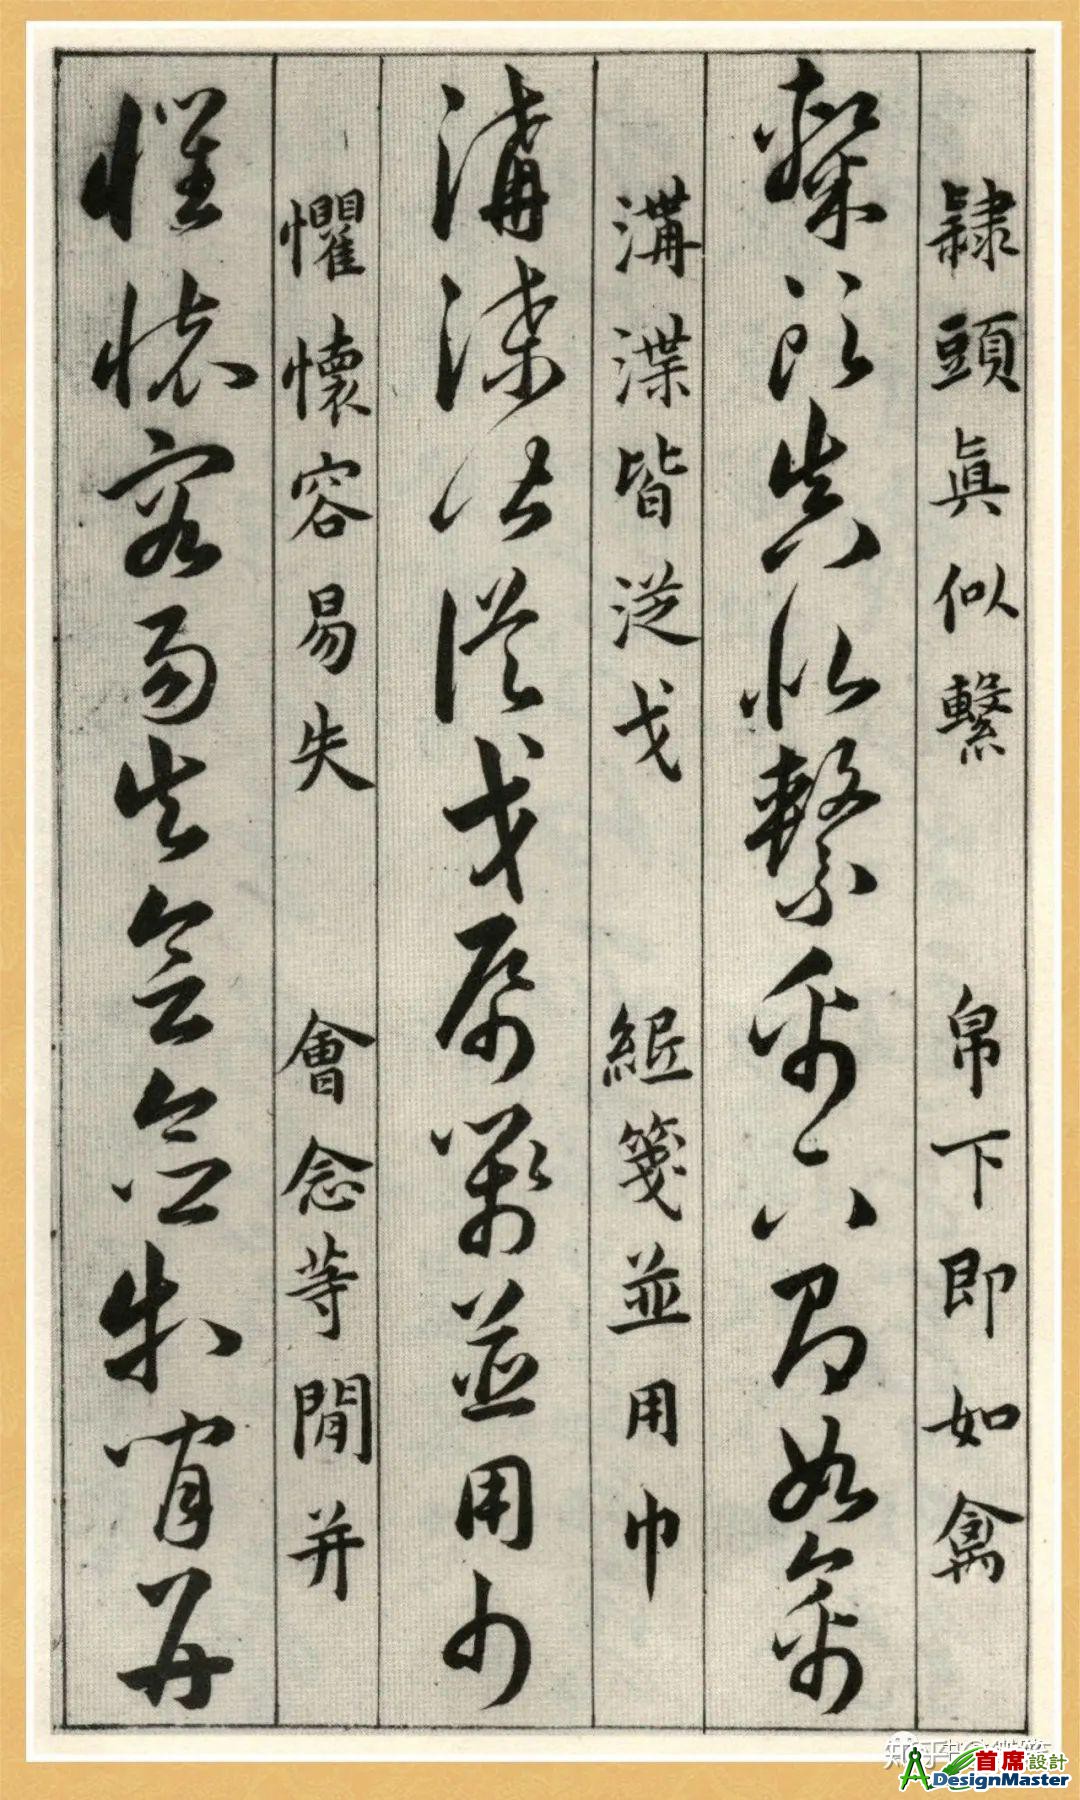 隸頭眞似繫 帛下即如禽
隸頭眞似繫帛下即如禽
溝渫皆從戈 紙箋並用巾
溝渫皆從戈紙箋並用巾
懼懷容易失 會念等閒并
懼懷容易失會念等閒并
知乎
首席設計
DesignMaster